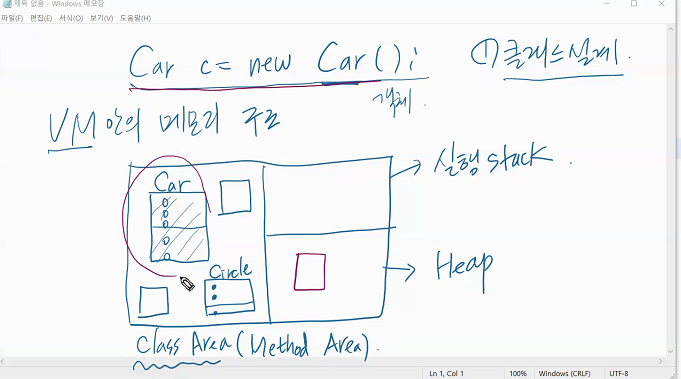 제목 없음 - Windows 메모장
파일(F) 편집(E) 서식(O) 보기(V) 도움말(H)
Car c = new Car(); ① 클래스 설계.
객체.
VM 안의 메모리 구조
Car
→ 실행 stack.
Circle
→ Heap
Class Area (Method Area).
Ln 1, Col 1 100% Windows (CRLF) UTF-8